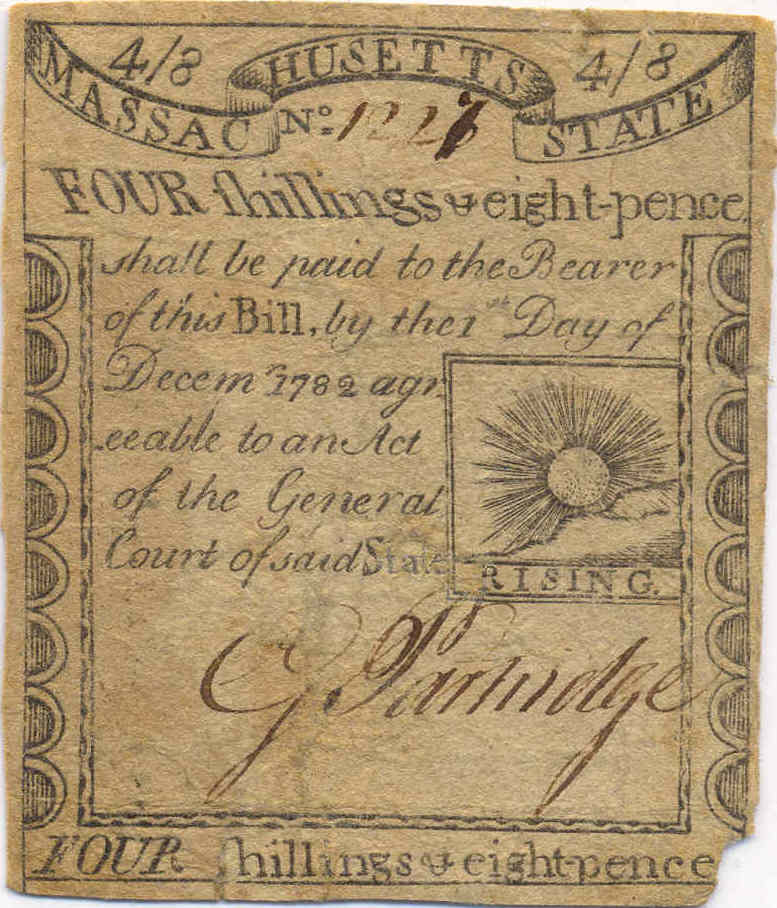 4/8 4/8
MASSACHUSETTS STATE
No: 1227
FOUR shillings & eight-pence.
shall be paid to the Bearer
of this Bill, by the 1st Day of
Decemr 1782 agr
eeable to an Act
of the General
Court of said State
RISING.
G Partridge
FOUR shillings & eight-pence